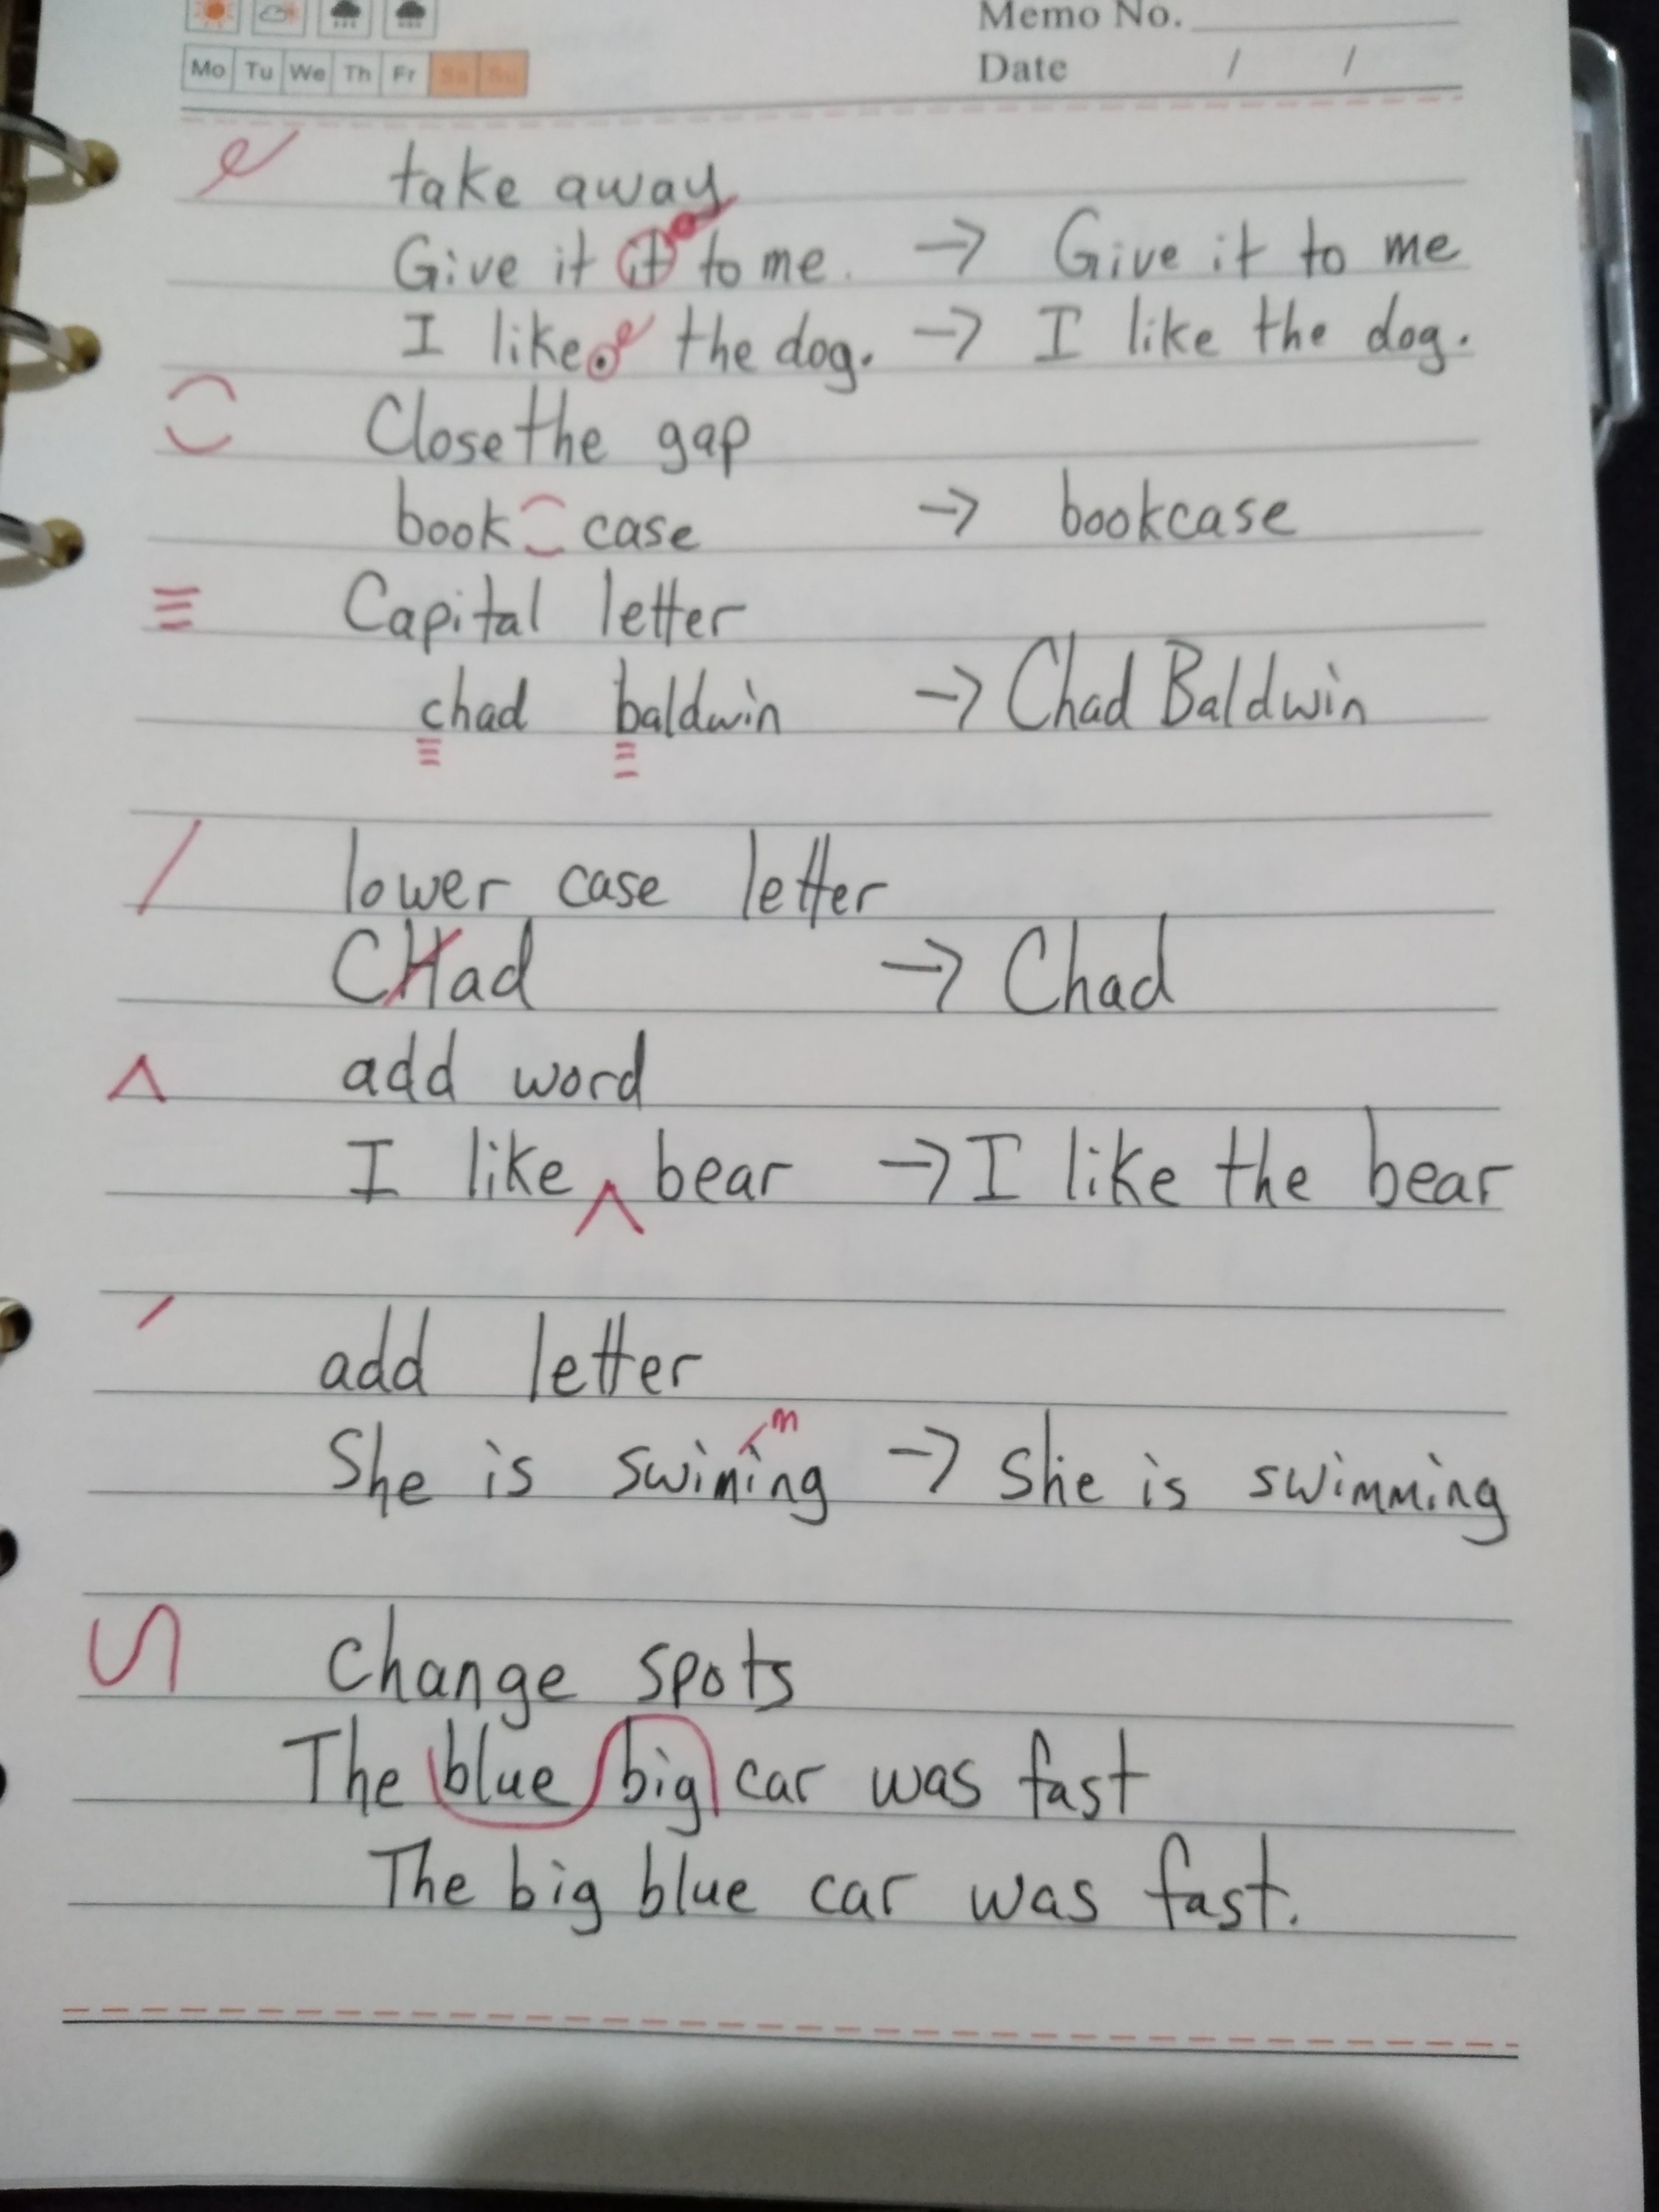 Memo No.
Mo Tu We Th Fr Sa Su
Date / /
take away
Give it it to me. → Give it to me
I like. the dog. → I like the dog.
Close the gap
book case → bookcase
Capital letter
chad baldwin → Chad Baldwin
lower case letter
CHad → Chad
add word
I like ^ bear → I like the bear
add letter
m
She is swiming → She is swimming
Change spots
The blue big car was fast
The big blue car was fast.